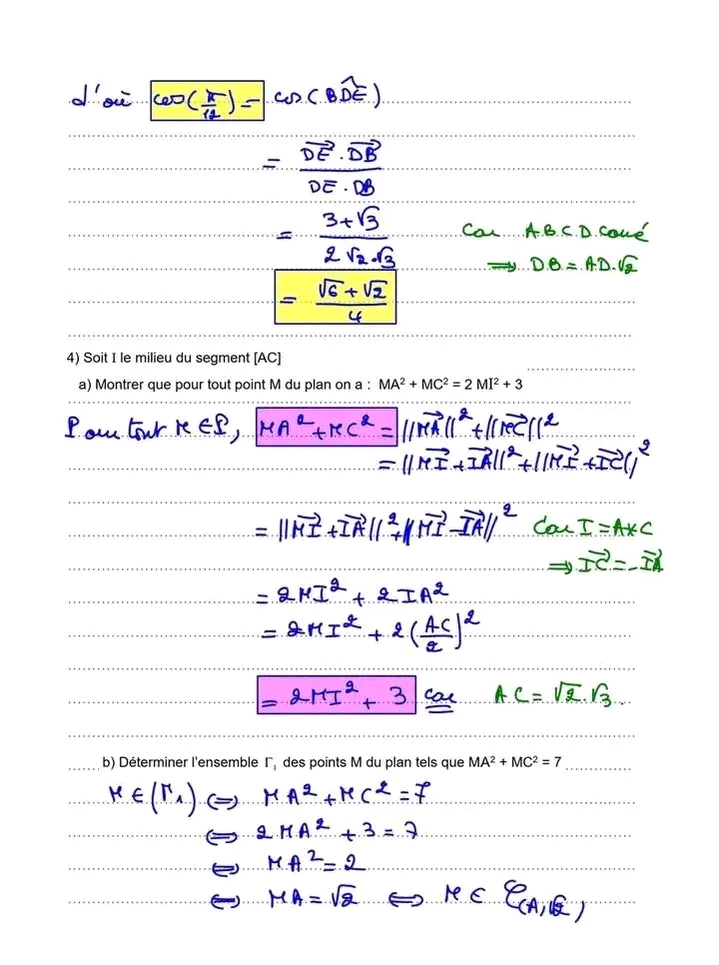 d'où cos(π/12) = cos(BD̂E)
= DE⃗ . DB⃗ / DE . DB
= 3+√3 / 2√2.√3 Car ABCD carré
⟹ DB = AD.√2
= √6 + √2 / 4
4) Soit I le milieu du segment [AC]
a) Montrer que pour tout point M du plan on a : MA² + MC² = 2 MI² + 3
Pour tout M ∈ P, MA² + MC² = ||MA⃗||² + ||MC⃗||²
= ||MI⃗ + IA⃗||² + ||MI⃗ + IC⃗||²
= ||MI⃗ + IA⃗||² + ||MI⃗ - IA⃗||² Car I = A*C
⟹ IC⃗ = -IA⃗
= 2MI² + 2IA²
= 2MI² + 2(AC/2)²
= 2MI² + 3 car AC = √2.√3.
b) Déterminer l'ensemble Γ₁ des points M du plan tels que MA² + MC² = 7
M ∈ (Γ₁) ⟺ MA² + MC² = 7
⟺ 2MA² + 3 = 7
⟺ MA² = 2
⟺ MA = √2 ⟺ M ∈ 𝒞(A,√2)